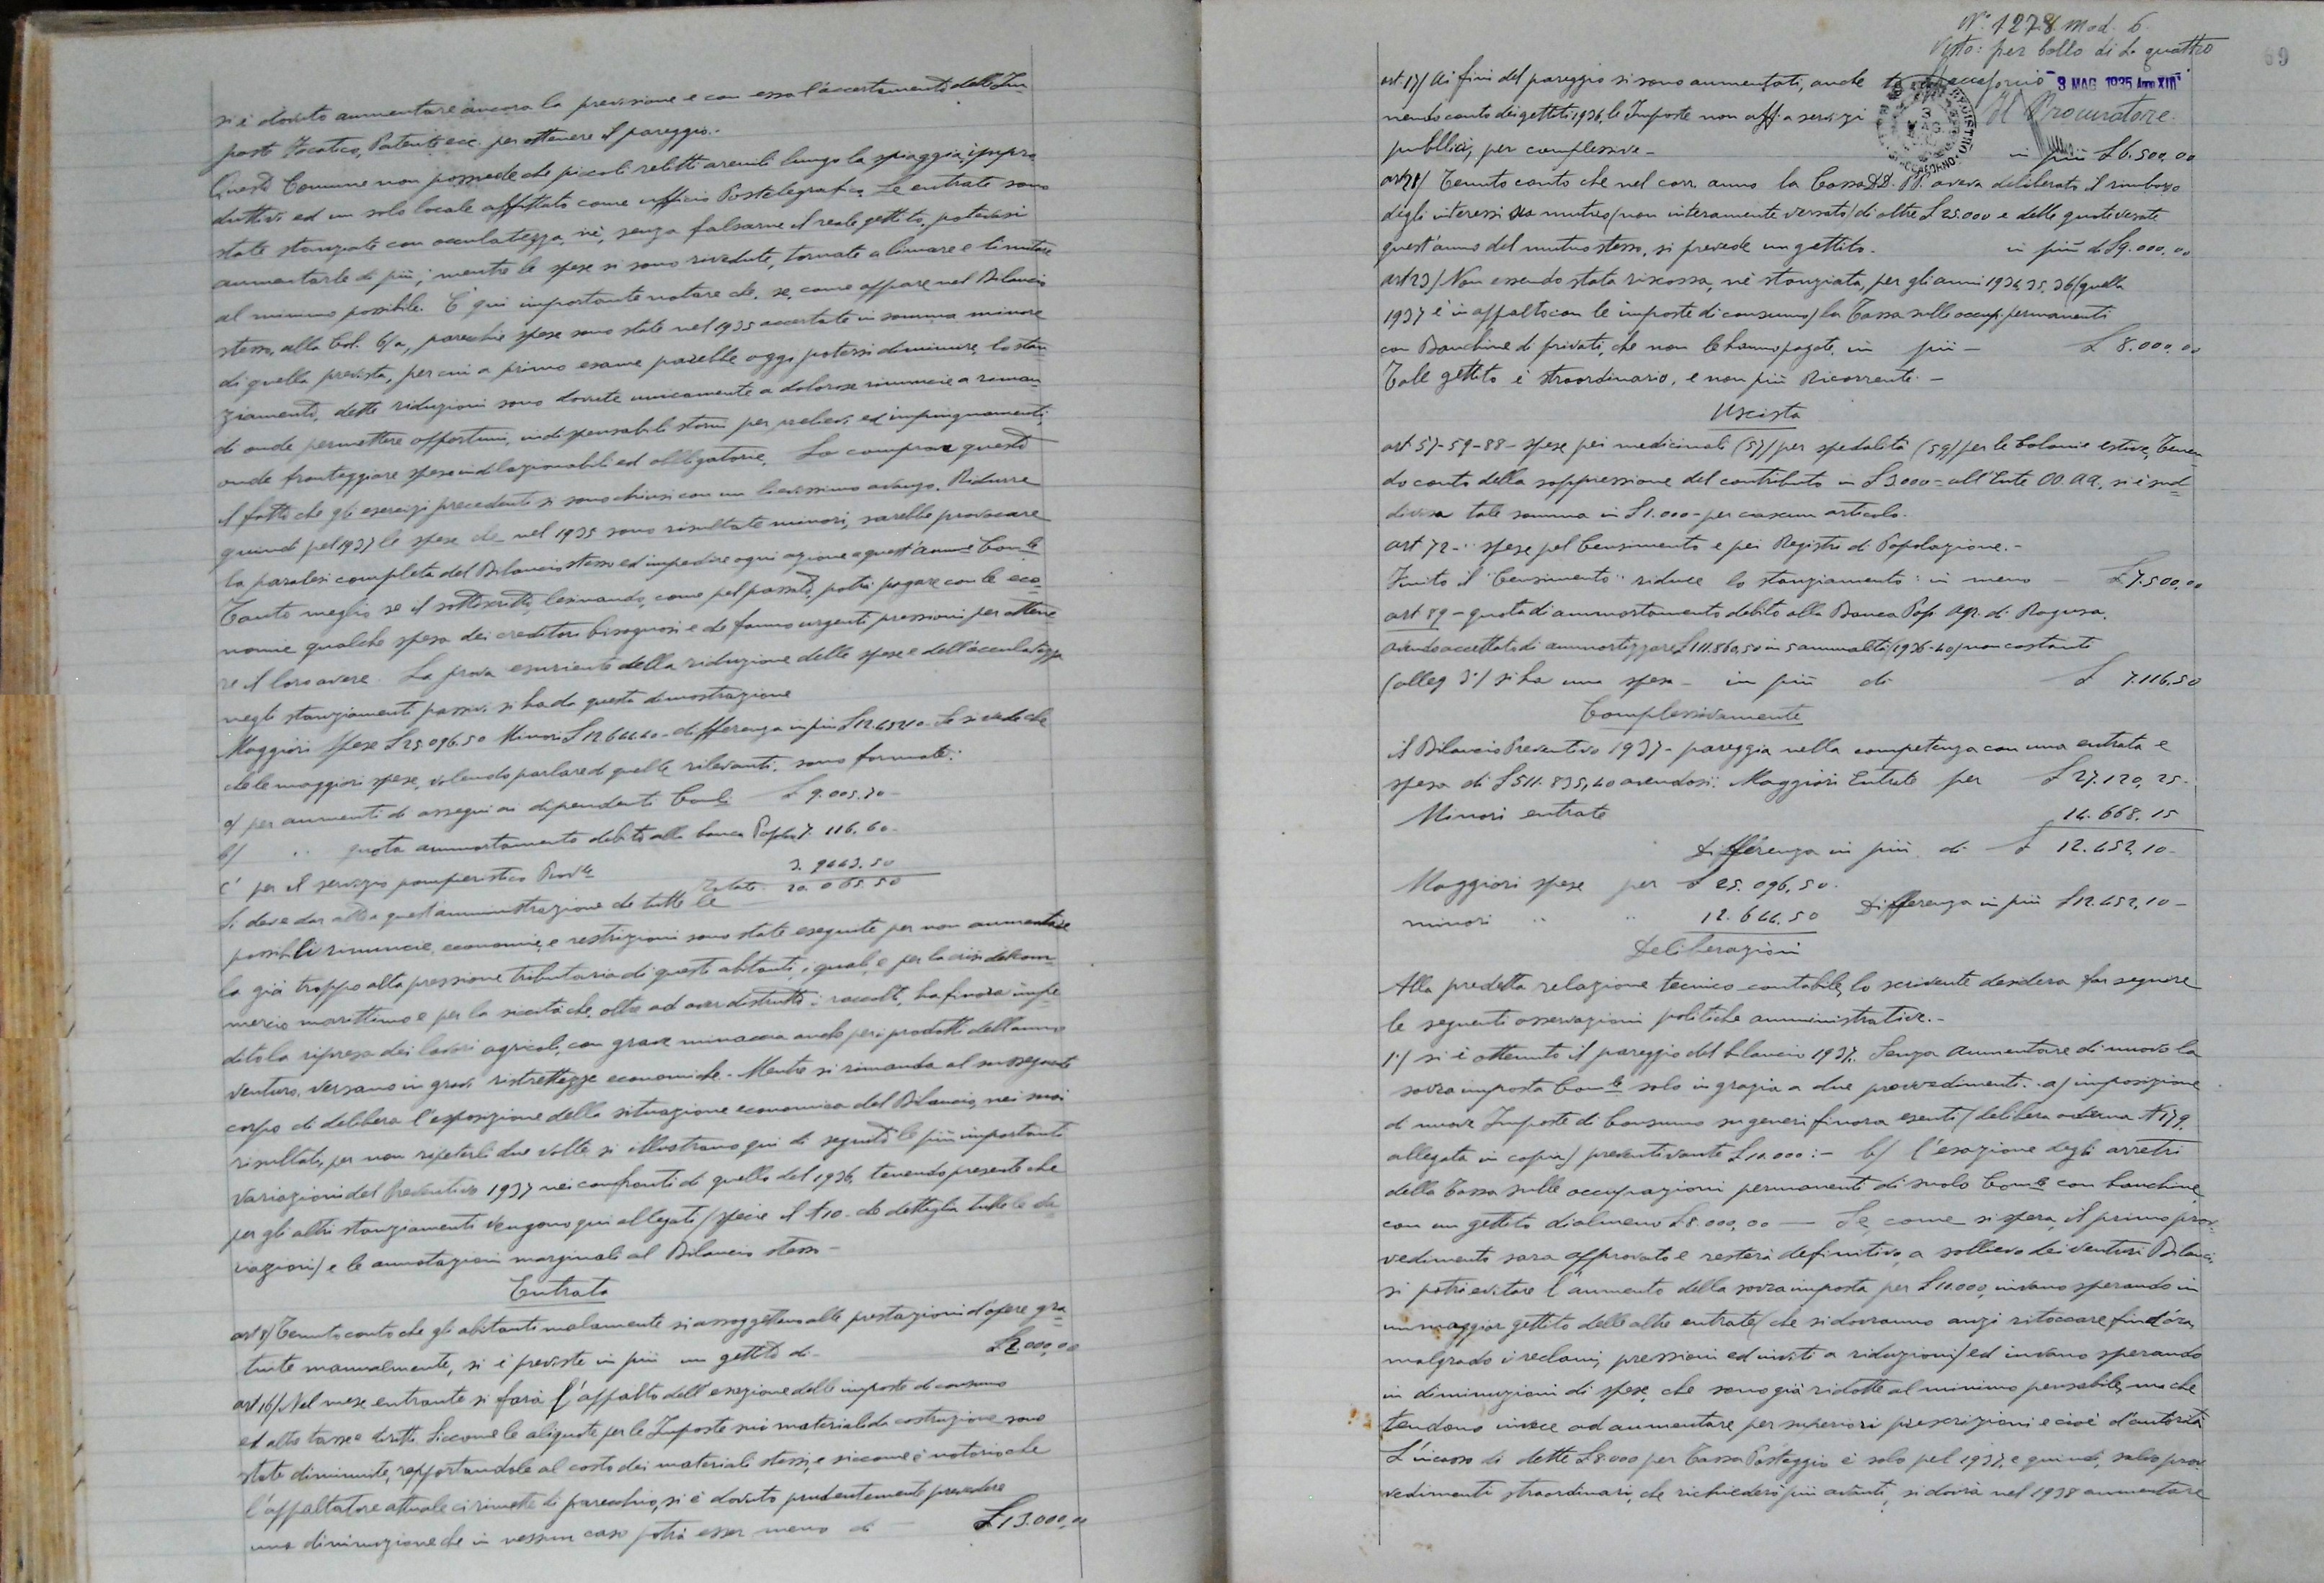 si è dovuto aumentare ancora la previsione e con essa l'accertamento delle Im
poste Focatico, Patente ecc. per ottenere il pareggio.-
Questo Comune non possiede che piccoli relitti arenili lungo la spiaggia, impro
duttivi ed un solo locale affittato come ufficio Postelegrafico. Le entrate sono
state stanziate con oculatezza, nè, senza falsarne il reale gettito, potevasi
aumentarle di più; mentre le spese si sono rivedute, tornate a limare e limitare
al minimo possibile. E' qui importante notare che, se, come appare nel Bilancio
stesso, alla Col. 6/a, parecchie spese sono state nel 1935 accertate in somma minore
di quella prevista, per cui a primo esame parrebbe oggi potersi diminuire lo stan
ziamento, dette riduzioni sono dovute unicamente a dolorose rinuncie a roman
di onde permettere opportuni, indispensabili storni per prelievi ed impinguamenti,
onde fronteggiare spese indilazionabili ed obbligatorie. Lo comprova questo
il fatto che gli esercizi precedenti si sono chiusi con un lievissimo avanzo. Ridurre
quindi pel 1937 le spese che nel 1935 sono risultate minori, sarebbe provocare
la paralisi completa del Bilancio stesso ed impedire ogni azione a quest'amm.e Com.le
Tanto meglio se il sottoscritto, lesinando, come pel passato, potrà pagare con le eco
nomie qualche spesa dei creditori bisognosi e che fanno urgenti pressioni per ottene
re il loro avere. La prova esauriente della riduzione delle spese e dell'oculatezza
negli stanziamenti passivi si ha da questa dimostrazione
Maggiori spese £ 25.096.50 Minori £ 12.644.40 - differenza in più £ 12.452.10 - Se si vede che
che le maggiori spese, volendo parlare di quelle rilevanti, sono formate:
a/ per aumenti di assegni ai dipendenti Com.li £ 9.005.70 -
b/ .. quota ammortamento debito alla banca Popol. 7.116.60 -
c' per il servizio pompieristico Prov.le 3.9443.50
Totale 20.065.50
Si deve dar atto a quest'amministrazione che tutte le
possibili rinuncie, economie, e restrizioni sono state eseguite per non aumentare
la già troppo alta pressione tributaria di questi abitanti, i quali, e per la crisi del com
mercio marittimo e per la siccità che, oltre ad aver distrutto i raccolti, ha finora impe
dito la ripresa dei lavori agricoli, con grave minaccia anche per i prodotti dell'anno
venturo, versano in gravi ristrettezze economiche. Mentre si rimanda al susseguente
corpo di delibera l'esposizione della situazione economica del Bilancio, nei suoi
risultati, per non ripeterli due volte si illustrano qui di seguito le più importanti
variazioni del Preventivo 1937 nei confronti di quello del 1936, tenendo presente che
per gli altri stanziamenti vengono qui allegati (specie il N 10 - che dettaglia tutte le va
riazioni) e le annotazioni marginali al Bilancio stesso -
Entrata
art 8) Tenuto conto che gli abitanti malamente si assoggettano alle prestazioni d'opere gra
tuite manualmente, si è previsto in più un gettito di - £ 2000,00
art 16) Nel mese entrante si farà l'appalto dell'esazione delle imposte di consumo
ed altre tasse e diritti. Siccome le aliquote per le Imposte sui materiali da costruzione sono
state diminuite, rapportandole al costo dei materiali stessi, e siccome è notorio che
l'appaltatore attuale ci rimette di parecchio, si è dovuto prudentemente prevedere
una diminuzione che in nessun caso potrà esser meno di - £ 13.000,00
N° 1278 Mod. 6.
Visto: per bollo di L quattro
69
3 MAG 1935 Anno XIII
Il Procuratore
art 17/ Ai fini del pareggio si sono aumentati, anche te
nendo conto dei gettiti 1936, le Imposte non aff. a servizi
pubblici, per complessive - in più £ 6.500,00
art 21/ Tenuto conto che nel corr. anno la Cassa DD. PP. aveva deliberato il rimborso
degli interessi su mutuo (non interamente versato) di oltre £ 25.000 e delle quote versate
quest'anno del mutuo stesso, si prevede un gettito - in più di £ 9.000,00
art 23/ Non essendo stata riscossa, nè stanziata, per gli anni 1934, 35, 36 (quella
1937 è in appalto con le imposte di consumo) la Tassa sulle occup. permanenti
con Banchine di privati, che non le hanno pagate, in più - £ 8.000,00
Tale gettito è straordinario, e non più Ricorrente. -
Uscita
art 57-59-88 - spese pei medicinali (57) per spedalità (59) per le Colonie estive, Tenen
do conto della soppressione del contributo in £ 3000 - all'Ente OO. AA. si è sud
divisa tale somma in £ 1.000 - per ciascun articolo.
art 72 - spese pel Censimento e pei Registri di Popolazione. -
Finito il "Censimento" riduce lo stanziamento in meno - £ 7.500,00
art 89 - quota di ammortamento debito alla Banca Pop. Agr. di Ragusa.
avendo accettato di ammortizzare £ 111.860,50 in 5 annualità (1936-40) non costanti
(alleg 3°) si ha una spesa - in più di £ 7.116,50
Complessivamente
il Bilancio Preventivo 1937 - pareggia nella competenza con una entrata e
spesa di £ 511.835,40 avendosi: Maggiori Entrate per £ 27.120,25 -
Minori entrate 14.668,15
Differenza in più di £ 12.452,10 -
Maggiori spese per £ 25.096,50 -
minori .. .. 12.644,50 Differenza in più £ 12.452,10 -
Deliberazioni
Alla predetta relazione tecnico contabile, lo scrivente desidera far seguire
le seguenti osservazioni politiche amministrative. -
1°/ si è ottenuto il pareggio del bilancio 1937. Senza aumentare di nuovo la
sovra imposta Com.le solo in grazia a due provvedimenti: a) imposizione
di nuove Imposte di Consumo su generi finora esenti (delibera odierna N 179
allegata in copia) preventivante £ 10.000: - b) l'esazione degli arretri
della Tassa sulle occupazioni permanenti di suolo Com.le con banchine
con un gettito di almeno £ 8.000,00 - Se, come si spera, il primo prov-
vedimento sara approvato e resterà definitivo, a sollievo dei venturi Bilanci,
si potrà evitare l'aumento della sovra imposta per £ 10.000, invano sperando in
un maggior gettito delle altre entrate (che si dovranno anzi ritoccare fin d'ora,
malgrado i reclami, pressioni ed inviti a riduzioni) ed invano sperando
in diminuzioni di spese, che sono già ridotte al minimo pensabile, ma che
tendono invece ad aumentare per superiori prescrizioni e cioè d'autorità
L'incasso di dette £ 8.000 per Tassa Posteggio è solo pel 1937, e quindi, salvo prov
vedimenti straordinari, che richiederò più avanti, si dovrà nel 1938 aumentare